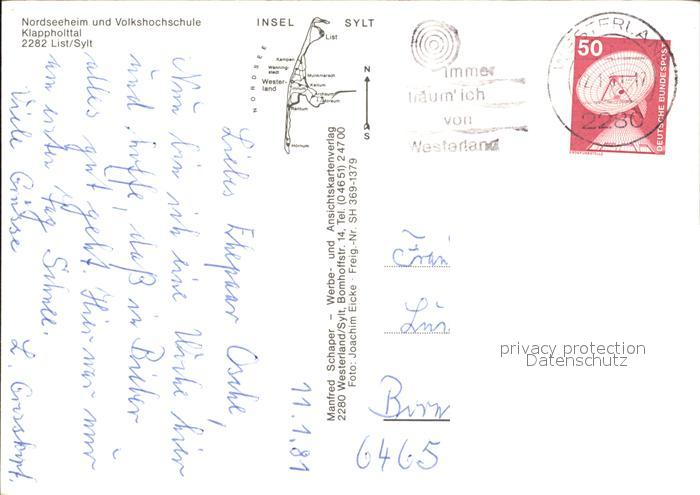 Nordseeheim und Volkshochschule
Klappholttal
2282 List/Sylt
INSEL SYLT
NORDSEE
List
Kampen
Wenningstedt
Westerland
Munkmarsch
Keitum
Archsum
Morsum
Rantum
Hörnum
N
S
immer
träum' ich
von
Westerland
WESTERLAND
2280
50
DEUTSCHE BUNDESPOST
11.1.81
Liebes Ehepaar Osche,
Nun bin ich eine Woche hier
und hoffe, daß in Bieber
alles gut geht. Hier war nur
am ersten Tag Schnee.
Viele Grüsse
Manfred Schaper – Werbe- und Ansichtskartenverlag
2280 Westerland/Sylt, Bomhoffstr. 14, Tel. (0 46 51) 2 47 00
Foto: Joachim Eicke · Freig.-Nr. SH 369-1379
6465
privacy protection
Datenschutz